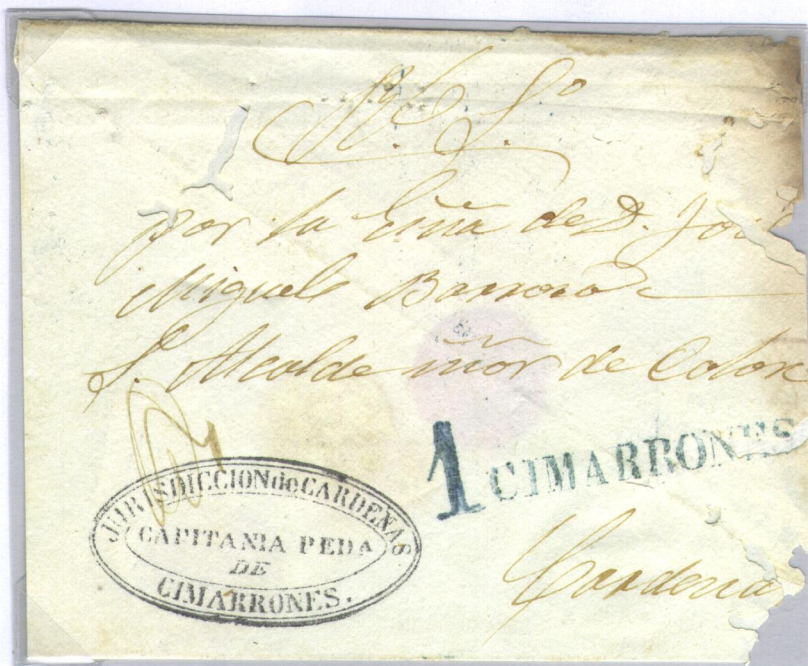 por la Eiña de D. José
Miguel Barroso
S. Alcalde mor de Colon
1 CIMARRONES
JURISDICCION de CARDENAS
CAPITANIA PEDA
DE
CIMARRONES.
Cardena